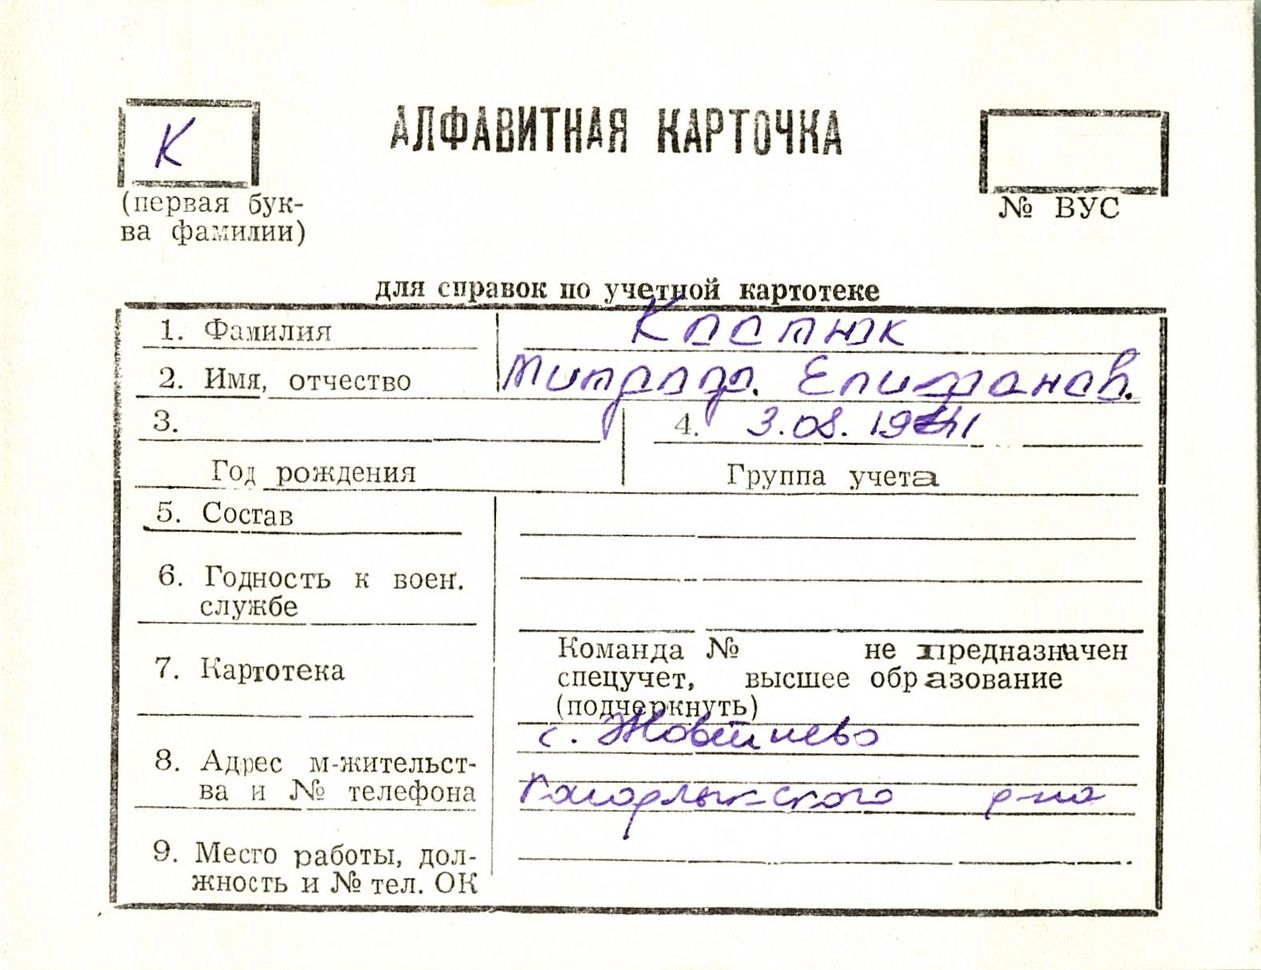 К
АЛФАВИТНАЯ КАРТОЧКА
(первая бук-
ва фамилии)
№ ВУС
для справок по учетной картотеке
1. Фамилия Костюк
2. Имя, отчество Митрофа. Епифанов.
3. 4. 3.08.1941
Год рождения Группа учета
5. Состав
6. Годность к воен.
службе
7. Картотека
Команда № не предназначен
спецучет, высшее образование
(подчеркнуть)
8. Адрес м-жительст-
ва и № телефона
с.
р-на
9. Место работы, дол-
жность и № тел. ОК